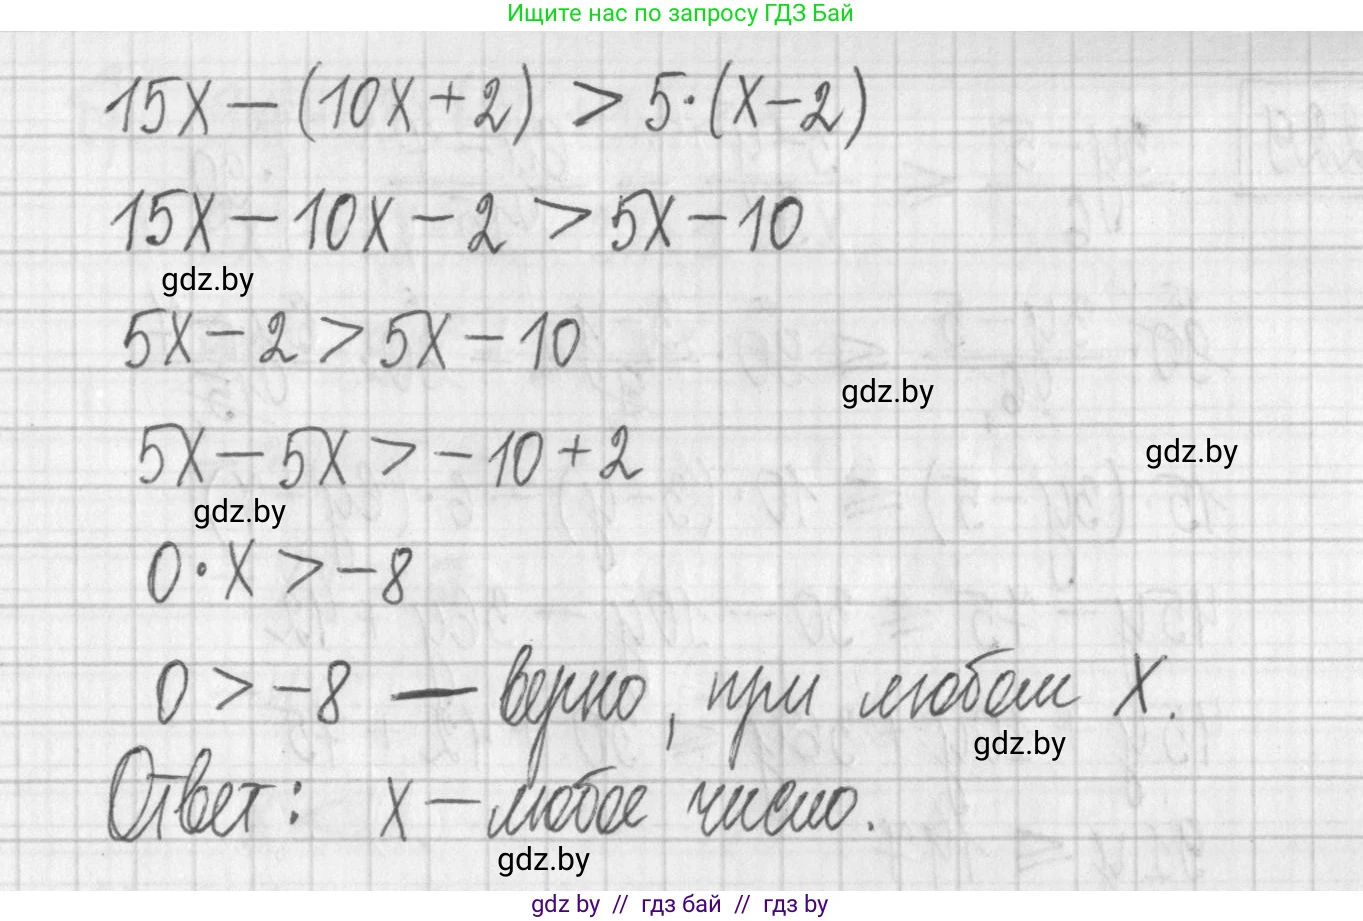 Ищите нас по запросу ГДЗ Бай
15x − (10x + 2) > 5·(x − 2)
15x − 10x − 2 > 5x − 10
gdz.by
5x − 2 > 5x − 10
gdz.by
5x − 5x > −10 + 2
gdz.by
gdz.by
0·x > −8
0 > −8 — верно, при любом x.
gdz.by
Ответ: x — любое число.
gdz.by
gdz by // гдз бай // гдз by